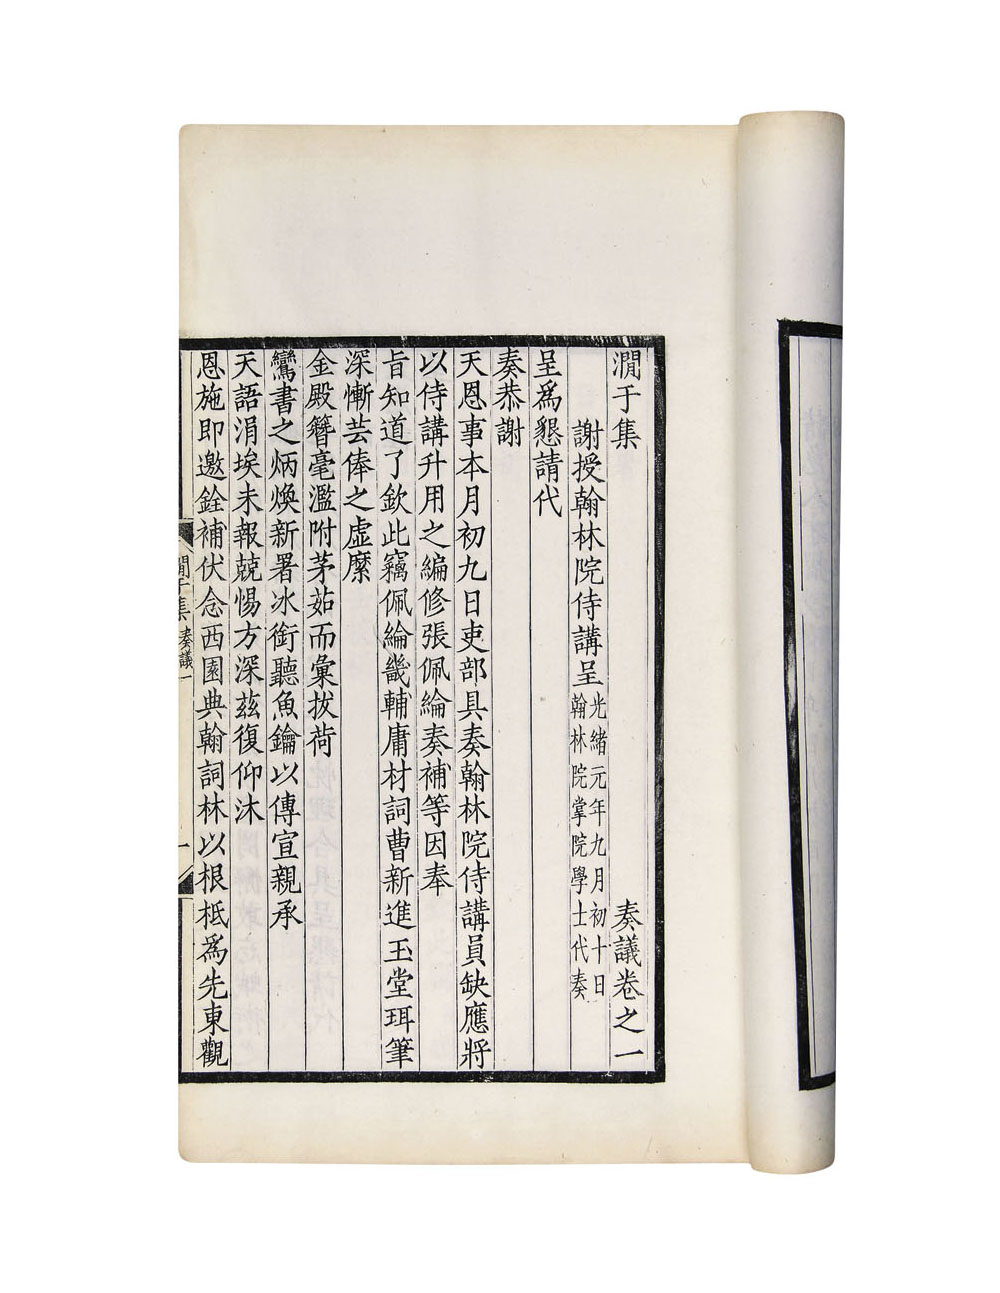 澗于集　奏議卷之一
謝授翰林院侍講呈光緒元年九月初十日
翰林院掌院學士代奏
呈爲懇請代
奏恭謝
天恩事本月初九日吏部具奏翰林院侍講員缺應將
以侍講升用之編修張佩綸奏補等因奉
旨知道了欽此竊佩綸畿輔庸材詞曹新進玉堂珥筆
深慚芸俸之虛縻
金殿簪毫濫附茅茹而彙拔荷
鸞書之炳煥新署冰銜聽魚鑰以傳宣親承
天語涓埃未報兢惕方深茲復仰沐
恩施即邀銓補伏念西園典翰詞林以根柢爲先東觀
澗于集　奏議一
一